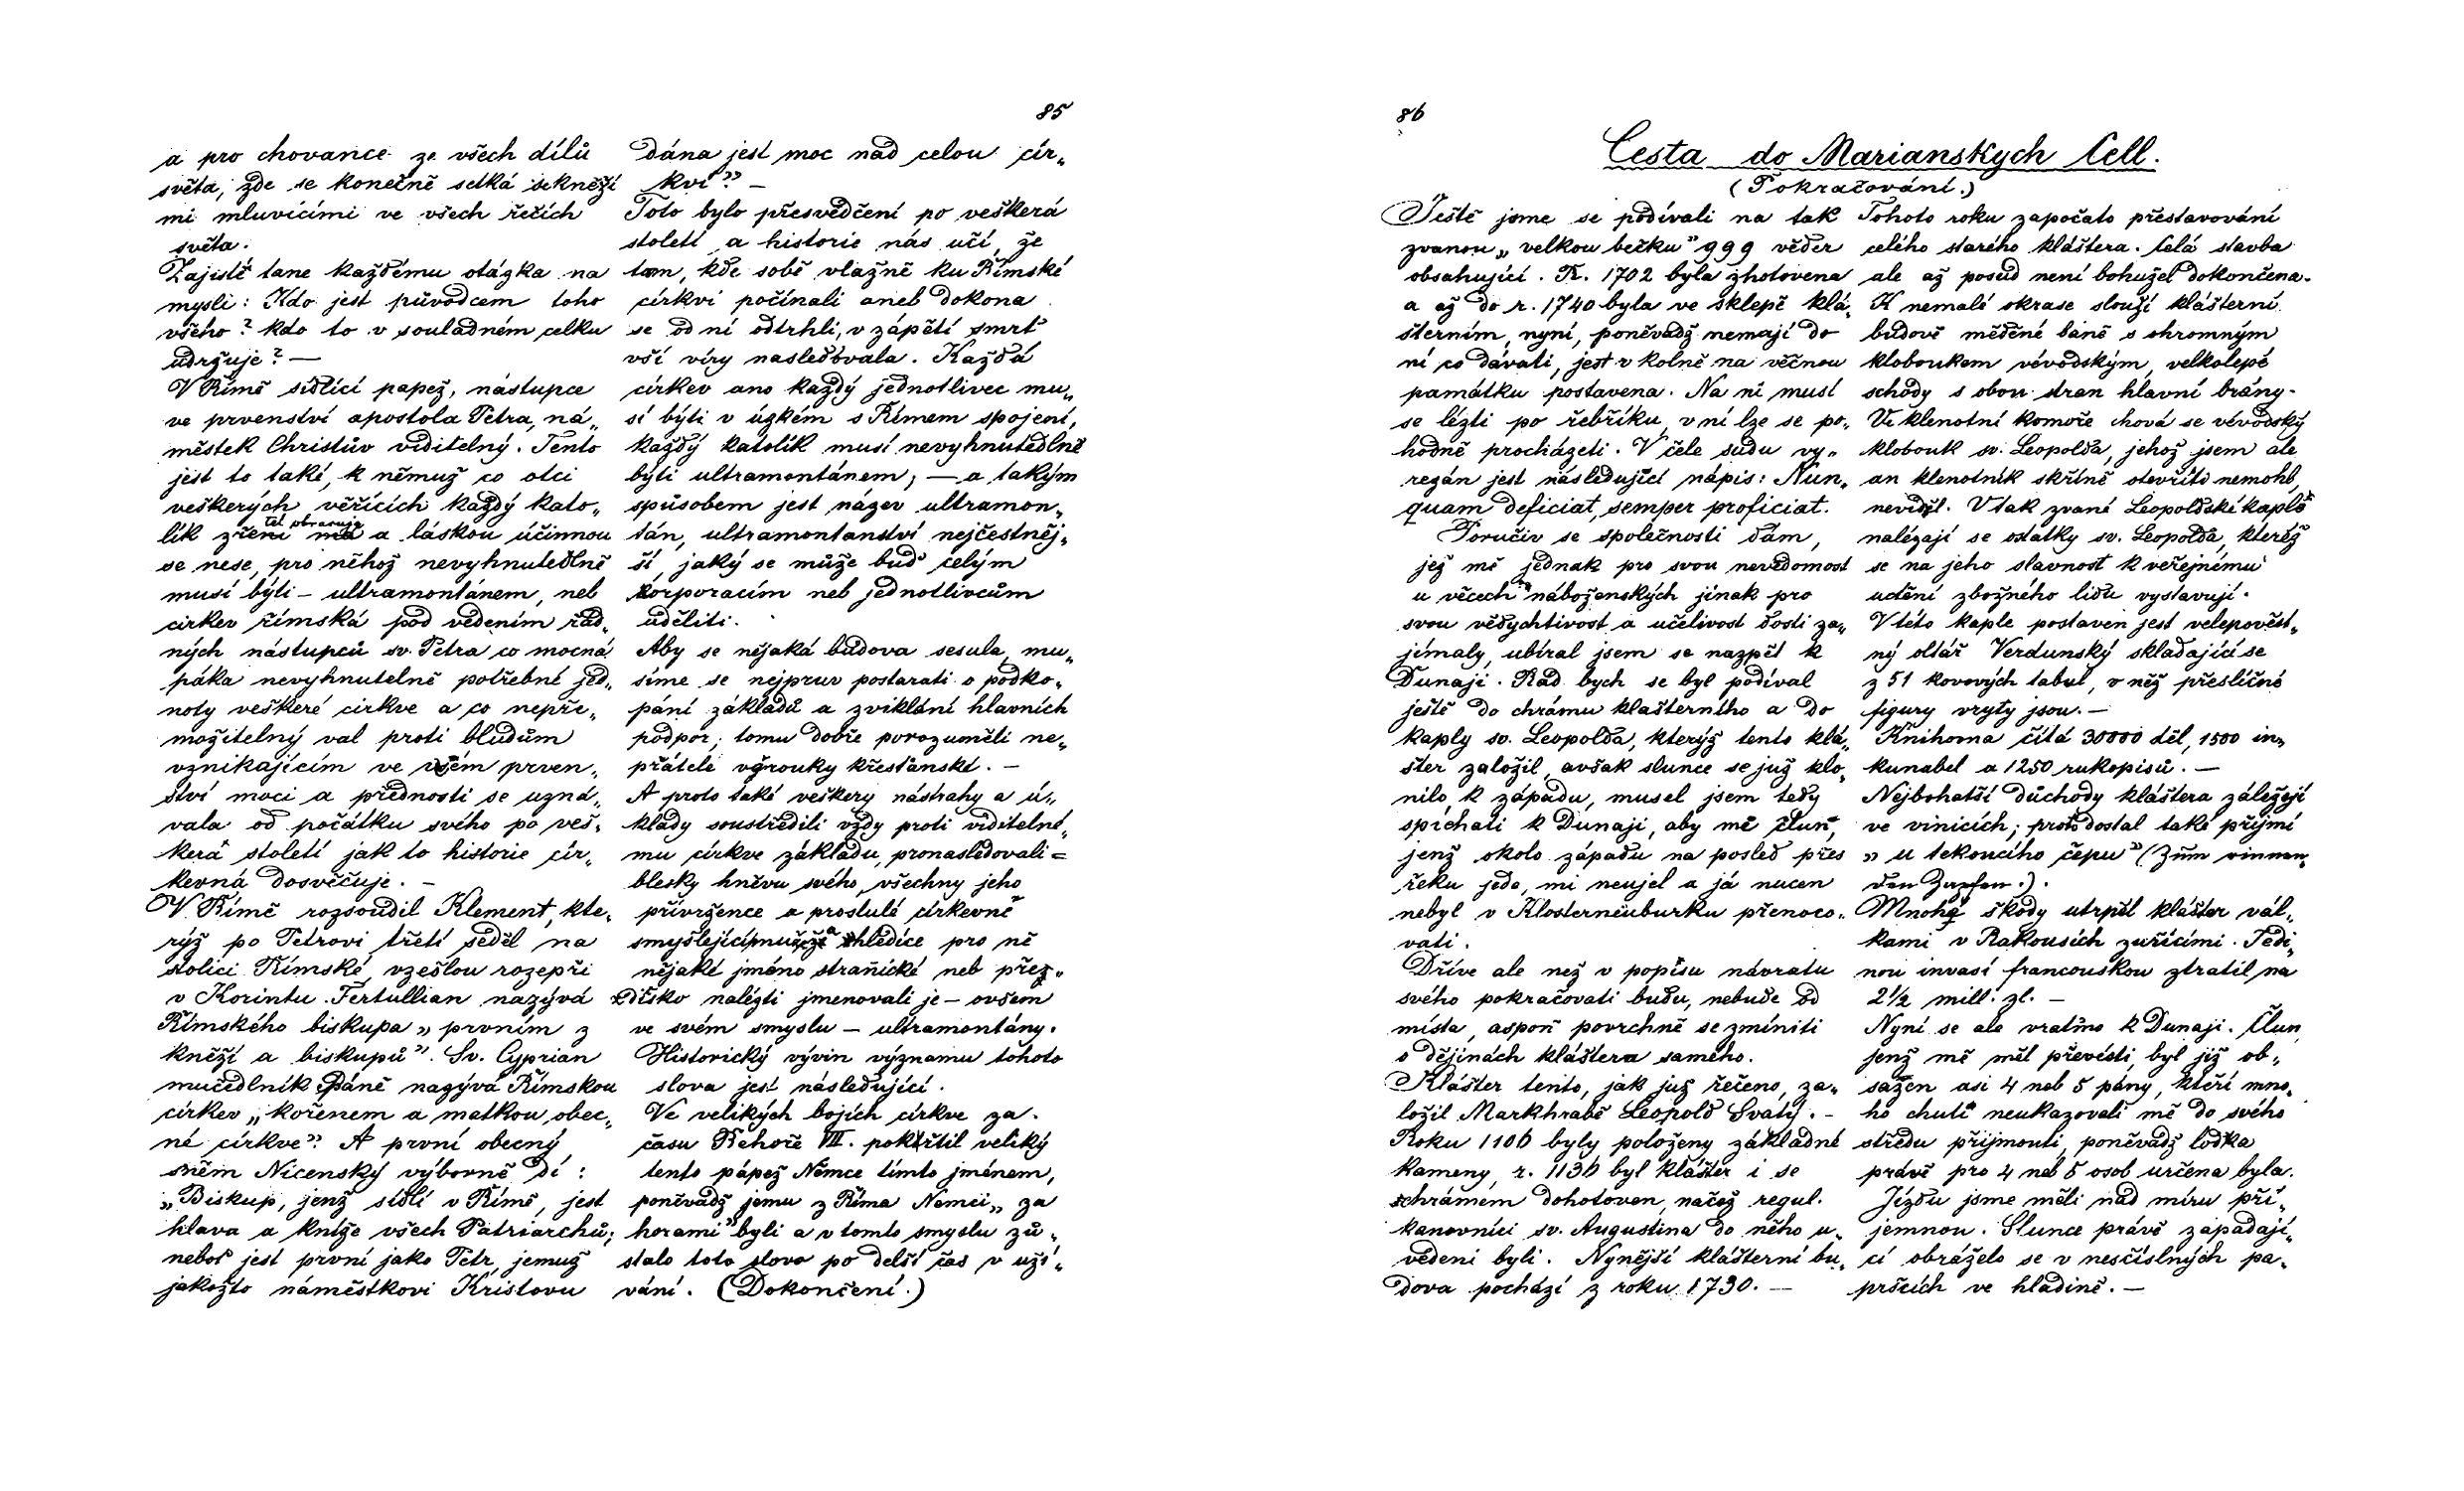 85
a pro chovance ze všech dílů
světa, zde se konečně setká s kněží
mi mluvícími ve všech řečích
světa.
Zajisté tane každému otázka na
mysli: Kdo jest původcem toho
všeho? kdo to v souladném celku
udržuje? —
V Římě sídlící papež, nástupce
ve prvenství apostola Petra, ná„
městek Christův viditelný. Tento
jest to také, k němuž co otci
veškerých věřících každý kato„
lík zření a láskou účinnou
se nese, pro něhož nevyhnutedlně
musí býti – ultramontánem, neb
cirkev římská pod vedením řád„
ných nástupců sv. Petra co mocná
páka nevyhnutelně potřebné jed„
noty veškeré cirkve a co nepře„
možitelný val proti bludům
vznikajícím ve všem prven„
ství moci a přednosti se uzná„
vala od počátku svého po veš„
kerá století jak to historie cír„
kevná dosvěčuje. –
V Římě rozsoudil Klement, kte„
rýž po Petrovi třetí seděl na
stolici Římské, vzešlou rozepři
v Korintu. Tertullian nazývá
Římského biskupa „prvním z
kněží a biskupů”. Sv. Cyprian
mučedlník Páně nazývá Římskou
církev „kořenem a matkou obec„
né církve”. A první obecný
sněm Nicenský výborně dí:
„Biskup, jenž sídlí v Římě, jest
hlava a kníže všech Patriarchů;
neboť jest první jako Petr, jemuž
jakožto náměstkovi Kristovu
dána jest moc nad celou cír„
kví” —
Toto bylo přesvědčení po veškerá
století a historie nás učí, že
tam, kde sobě vlažně ku Římské
církvi počínali aneb dokona
se od ní odtrhli, v zápětí smrť
vší víry nasledovala. Každá
církev ano každý jednotlivec mu„
sí býti v úzkém s Římem spojení,
každý katolík musí nevyhnutedlně
býti ultramontánem; — a takým
spůsobem jest název ultramon„
tán, ultramontanství nejčestněj„
ší, jaký se může buď celým
korporacím neb jednotlivcům
uděliti.
Aby se nějaká budova sesula, mu„
síme se nejpruv postarati o podko„
pání základů a zviklání hlavních
podpor; tomu dobře porozuměli ne„
přátelé výrouky křesťanské. —
A proto také veškery nástrahy a ú„
klady soustředili vždy proti viditelné„
mu církve základu, pronasledovali =
blesky hněvu svého, všechny jeho
přívržence a prostulé církevně
smyšlející muže a hledíce pro ně
nějaké jméno straňické neb přez„
dísko nalézti jmenovali je – ovšem
ve svém smyslu – ultramontány.
Historický vývin významu tohoto
slova jest následující.
Ve velikých bojích církve za
času Řehoře VII. pokřtil veliký
tento pápež Němce tímto jménem,
poněvadž jemu z Říma Nemci „za
horami” byli a v tomto smyslu zů„
stalo toto slovo po delší čas v uží„
vání. (Dokončení.)
86
Cesta do Marianskych Cell.
(Pokračování.)
Ještě jsme se podívali na tak
zvanou „velkou bečku” 999 věder
obsahující. R. 1702 byla zhotovena
a až do r. 1740 byla ve sklepě klá„
šterním, nyní, poněvadž nemají do
ní co dávati, jest v kolně na věčnou
památku postavena. Na ni musí
se lézti po řebříku, v ní lze se po„
hodně procházeti. V čele sudu vy„
rezán jest následující nápis: Nun„
quam deficiat, semper proficiat.
Poručiv se společnosti dám,
jež mě jednak pro svou nevědomost
u věcech náboženských jinak pro
svou vědychtivost a učelivost dosti za„
jímaly, ubíral jsem se nazpět k
Dunaji. Rád bych se byl podíval
ještě do chrámu klašterního a do
kaply sv. Leopolda, kterýž tento klá„
šter založil, avšak slunce se juž klo„
nilo k západu, musel jsem tedy
spíchati k Dunaji, aby mě člun,
jenž okolo západu na posled přes
řeku jede, mi neujel a já nucen
nebyl v Klosterneuburku přenoco„
vati.
Dříve ale než v popisu návratu
svého pokračovati budu, nebude od
místa, aspoň povrchně se zmíniti
o dějinách kláštera samého.
Klášter tento, jak juž řečeno, za„
ložil Markhrabě Leopold Svatý. –
Roku 1106 byly položeny základné
kameny, r. 1136 byl klášter i se
chrámem dohotoven, načež regul.
kanovníci sv. Augustina do něho u„
vedeni byli. Nynější klášterní bu„
dova pochází z roku 1730. —
Tohoto roku započato přestavování
celého starého kláštera. Celá stavba
ale až posud není bohužel dokončena.
K nemalé okrase slouží klášterní
budově měděné báně s ohromným
kloboukem vévodským, velkolepé
schody s obou stran hlavní brány.
Ve klenotní komoře chová se vévodský
klobouk sv. Leopolda, jehož jsem ale
an klenotník skříně otevříti nemohl,
neviděl. V tak zvané Leopoldské kaplé
nalézají se ostatky sv. Leopolda, kteréž
se na jeho slavnost k veřejnému
uctění zbožného lidu vystavují.
V této kaple postaven jest velepověst„
ný oltář Verdunský skladající se
z 51 kovových tabul, v něž přeslíčné
figury vryty jsou. —
Knihovna čítá 30000 děl, 1500 in„
kunabel a 1250 rukopisů. —
Nejbohatší důchody kláštera záležejí
ve vinicích; proto dostal také příjmí
„u tekoucího čepu” (Zum rinnen„
den Zapfen.).
Mnohé škody utrpěl klášter vál„
kami v Rakousích zuřícími. Jedi„
nou invasí francouskou ztratil na
2½ mill. zl. —
Nyní se ale vraťmo k Dunaji. Člun
jenž mě měl převésti, byl již ob„
sažen asi 4 neb 5 pány, kteří mno„
ho chuti neukazovali mě do svého
středu přijmouti, poněvadž loďka
právě pro 4 neb 5 osob určena byla.
Jízdu jsme měli nad míru pří„
jemnou. Slunce právě zapadají„
cí obráželo se v nesčíslných pa„
prscích ve hladině. —